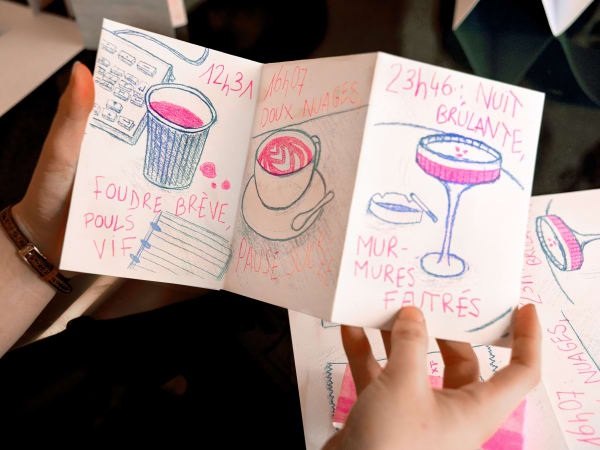 12h31
FOUDRE BRÈVE,
POULS
VIF
16h07
DOUX NUAGES
PAUSE
23h46 : NUIT
BRÛLANTE,
MUR-
MURES
FEUTRÉS
16h07 :
NUAGES